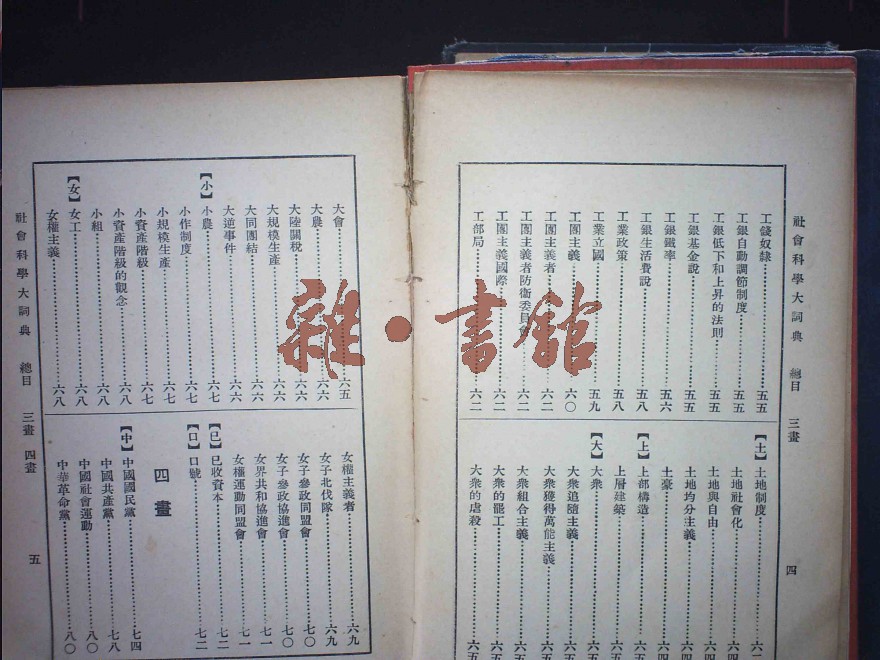 社會科學大詞典 總目 三畫 四
工錢奴隸 五五
工銀自動調節制度 五五
工銀低下和上昇的法則 五五
工銀基金說 五五
工銀鐵率 五六
工銀生活費說 五八
工業政策 五八
工業立國 五九
工團主義 六〇
工團主義者 六二
工團主義者防衛委員會 六二
工團主義國際 六二
工部局 六二
【土】土地制度 六二
土地社會化
土地與自由
土地均分主義
土豪
【上】上部構造
上層建築
【大】大衆
大衆追隨主義
大衆獲得萬能主義
大衆組合主義
大衆的罷工
大衆的虐殺
大會 六五
大農 六六
大陸關稅 六六
大規模生產 六六
大同團結 六六
大逆事件 六六
【小】小農 六七
小作制度 六七
小規模生產 六七
小資產階級 六七
小資產階級的觀念 六八
小組 六八
【女】女工 六八
女權主義 六八
女權主義者 六九
女子北伐隊 六九
女子參政同盟會 七〇
女子參政協進會 七〇
女界共和協進會 七一
女權運動同盟會 七一
【已】已收資本 七二
【口】口號 七二
四畫
【中】中國國民黨 七四
中國共產黨 七八
中國社會運動 八〇
中華革命黨 八〇
社會科學大詞典 總目 三畫 四畫 五
雜·書館